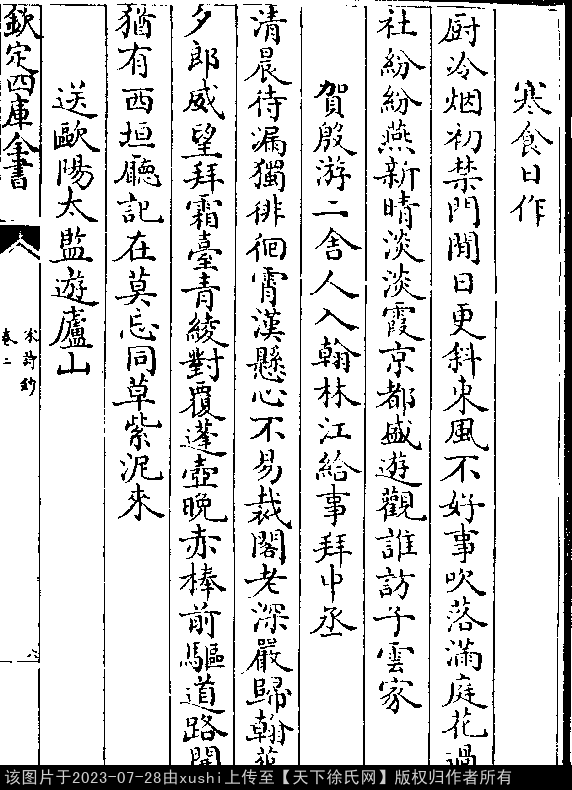 寒食日作
厨冷烟初禁門閒日更斜東風不好事吹落滿庭花過
社紛紛燕新晴淡淡霞京都盛遊觀誰訪子雲家
賀殷游二舍人入翰林江給事拜中丞
清晨待漏獨徘徊霄漢懸心不易裁閣老深嚴歸翰苑
夕郎威望拜霜臺青綾對覆蓬壺晚赤棒前驅道路開
猶有西垣廳記在莫忘同草紫泥來
送歐陽太監遊廬山
欽定四庫全書
詩鈔
卷二
该图片于2023-07-28由xushi上传至【天下徐氏网】版权归作者所有